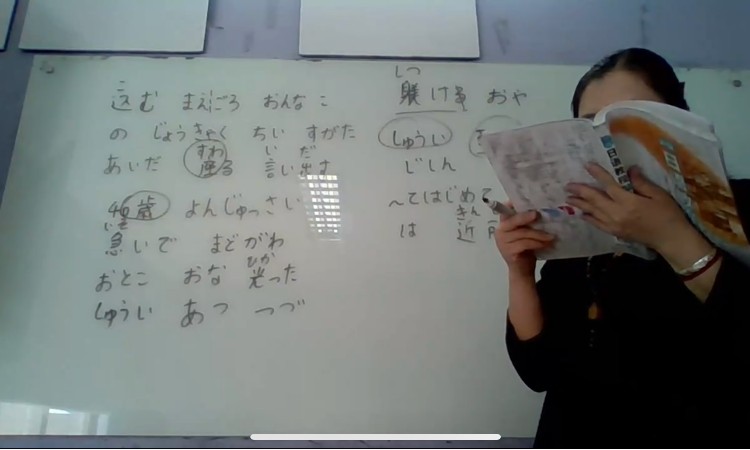 込む まえごろ おんなこ
の じょうきゃく ちい すがた
すわ い だ
あいだ 座る 言い出す
46歳 よんじゅっさい
いそ
急いで まどがわ
ひか
おとこ おな 光った
しゅうい あつ つづ
しつ
躾ける おや
しゅうい
じしん
～てはじめて
きん
は 近